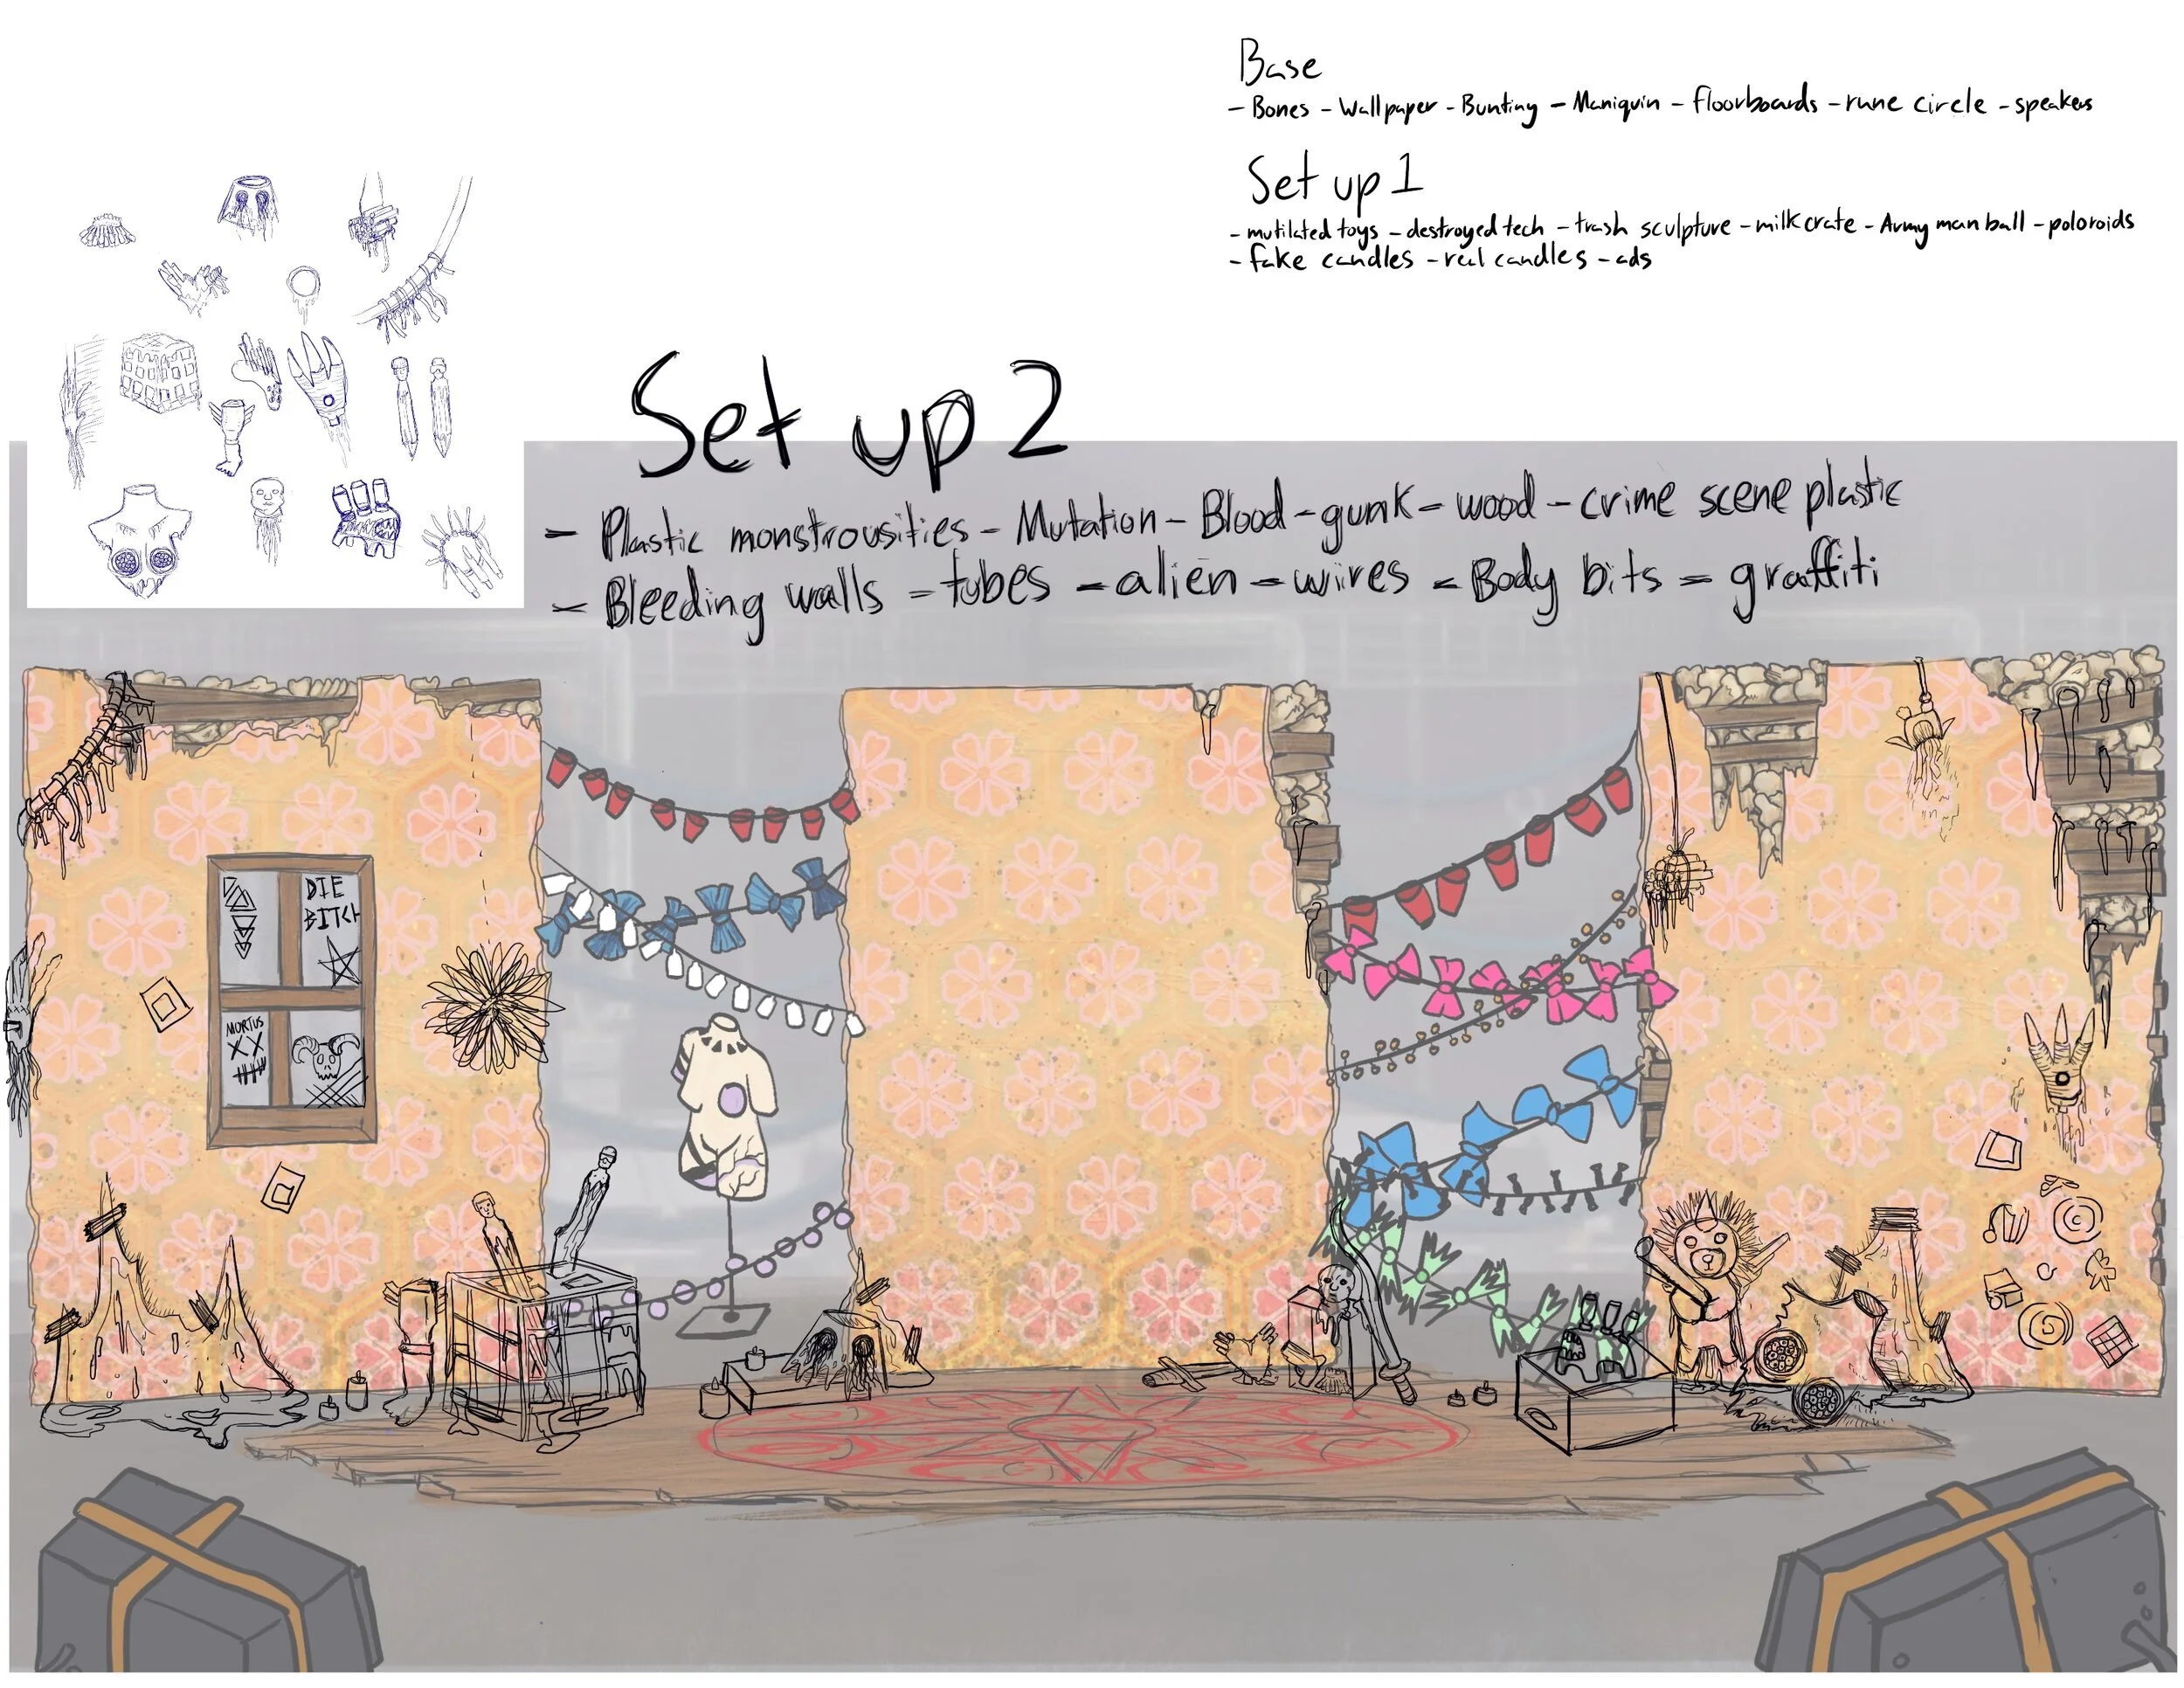 Base
- Bones - Wallpaper - Bunting - Maniquin - floorboards - rune circle - speakers
Set up 1
- mutilated toys - destroyed tech - trash sculpture - milk crate - Army man ball - poloroids
- fake candles - real candles - ads
Set up 2
- Plastic monstrousities - Mutation - Blood - gunk - wood - crime scene plastic
- Bleeding walls - tubes - alien - wires - Body bits - graffiti
DIE
BITCH
MORTUS
XX